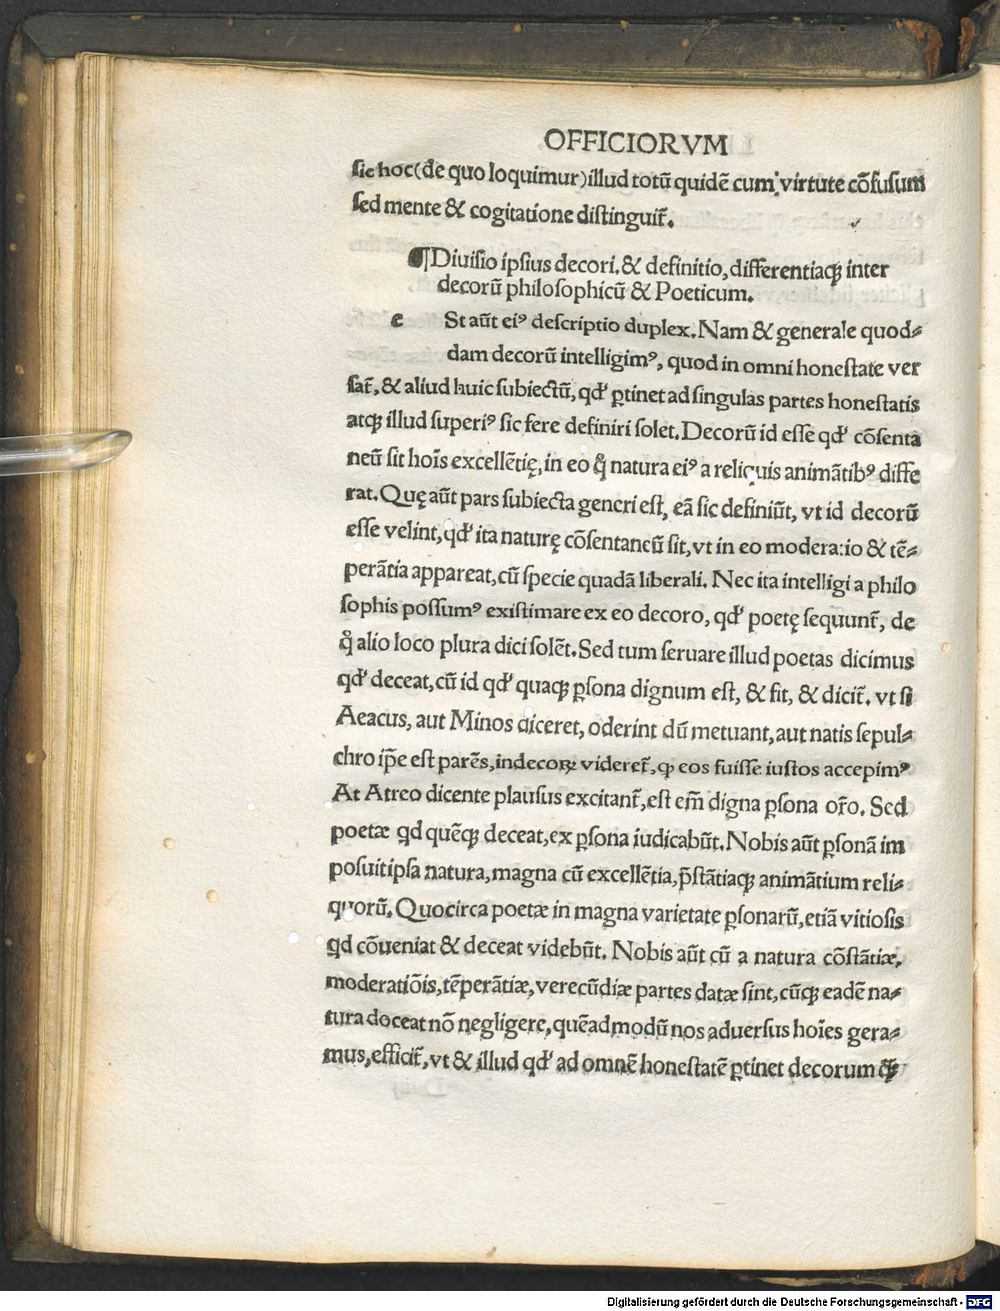 OFFICIORVM
sic hoc(de quo loquimur)illud totū quidē cum virtute cōfusum
sed mente & cogitatione distinguit̃.
¶Diuisio ipsius decori.& definitio,differentiaqꝫ inter
decorū philosophicū & Poeticum.
e St aūt eiꝰ descriptio duplex.Nam & generale quod⸗
dam decorū intelligimꝰ, quod in omni honestate ver
sat̃,& aliud huic subiectū, qđ ꝑtinet ad singulas partes honestatis
atqꝫ illud superiꝰ sic fere definiri solet.Decorū id esse qđ cōsenta
neū sit hoīs excellētię,in eo q̊ natura eiꝰ a reliquis animātibꝰ diffe
rat.Quę aūt pars subiecta generi est, eā sic definiūt, vt id decorū
esse velint,qđ ita naturę cōsentaneū sit,vt in eo moderatio & tē⸗
perātia appareat,cū specie quadā liberali. Nec ita intelligi a philo
sophis possumꝰ existimare ex eo decoro, qđ poetę sequunt̃, de
q̊ alio loco plura dici solēt.Sed tum seruare illud poetas dicimus
qđ deceat,cū id qđ quaqꝫ ꝑsona dignum est, & fit, & dicit̃. vt si
Aeacus, aut Minos diceret, oderint dū metuant,aut natis sepul⸗
chro ip̄e est parēs,indecoꝝ videret̃,ꝙ eos fuisse iustos accepimꝰ
At Atreo dicente plausus excitant̃,est em̄ digna ꝑsona or̄o. Sed
poetæ qd quēqꝫ deceat,ex ꝑsona iudicabūt.Nobis aūt ꝑsonā im
posuit ipsa natura,magna cū excellētia,p̄stātiaqꝫ animātium reli⸗
quorū.Quocirca poetæ in magna varietate ꝑsonarū,etiā vitiosis
qd cōueniat & deceat videbūt. Nobis aūt cū a natura cōstātiæ,
moderatiōis,tēperātiæ,verecūdiæ partes datæ sint,cūqꝫ eadē na⸗
tura doceat nō negligere,quēadmodū nos aduersus hoīes gera⸗
mus,efficit̃,vt & illud qđ ad omnē honestatē ꝑtinet decorum
Digitalisierung gefördert durch die Deutsche Forschungsgemeinschaft - DFG